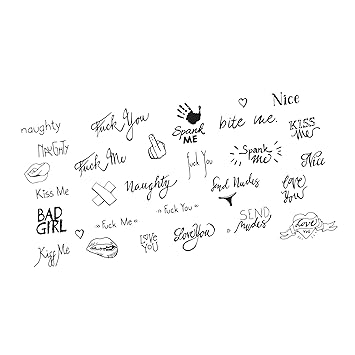 Nice
Fuck You
Spank
ME
bite me.
KISS
Me
naughty
NAUGHTY
Fuck Me
Fuck You
Spank
Me
Nice
Kiss Me
Naughty
Send Nudes
Love
You
BAD
GIRL
" Fuck Me "
" Fuck You "
SEND
nudes
Kiss Me
LOVE
YOU
Love You
Love
You